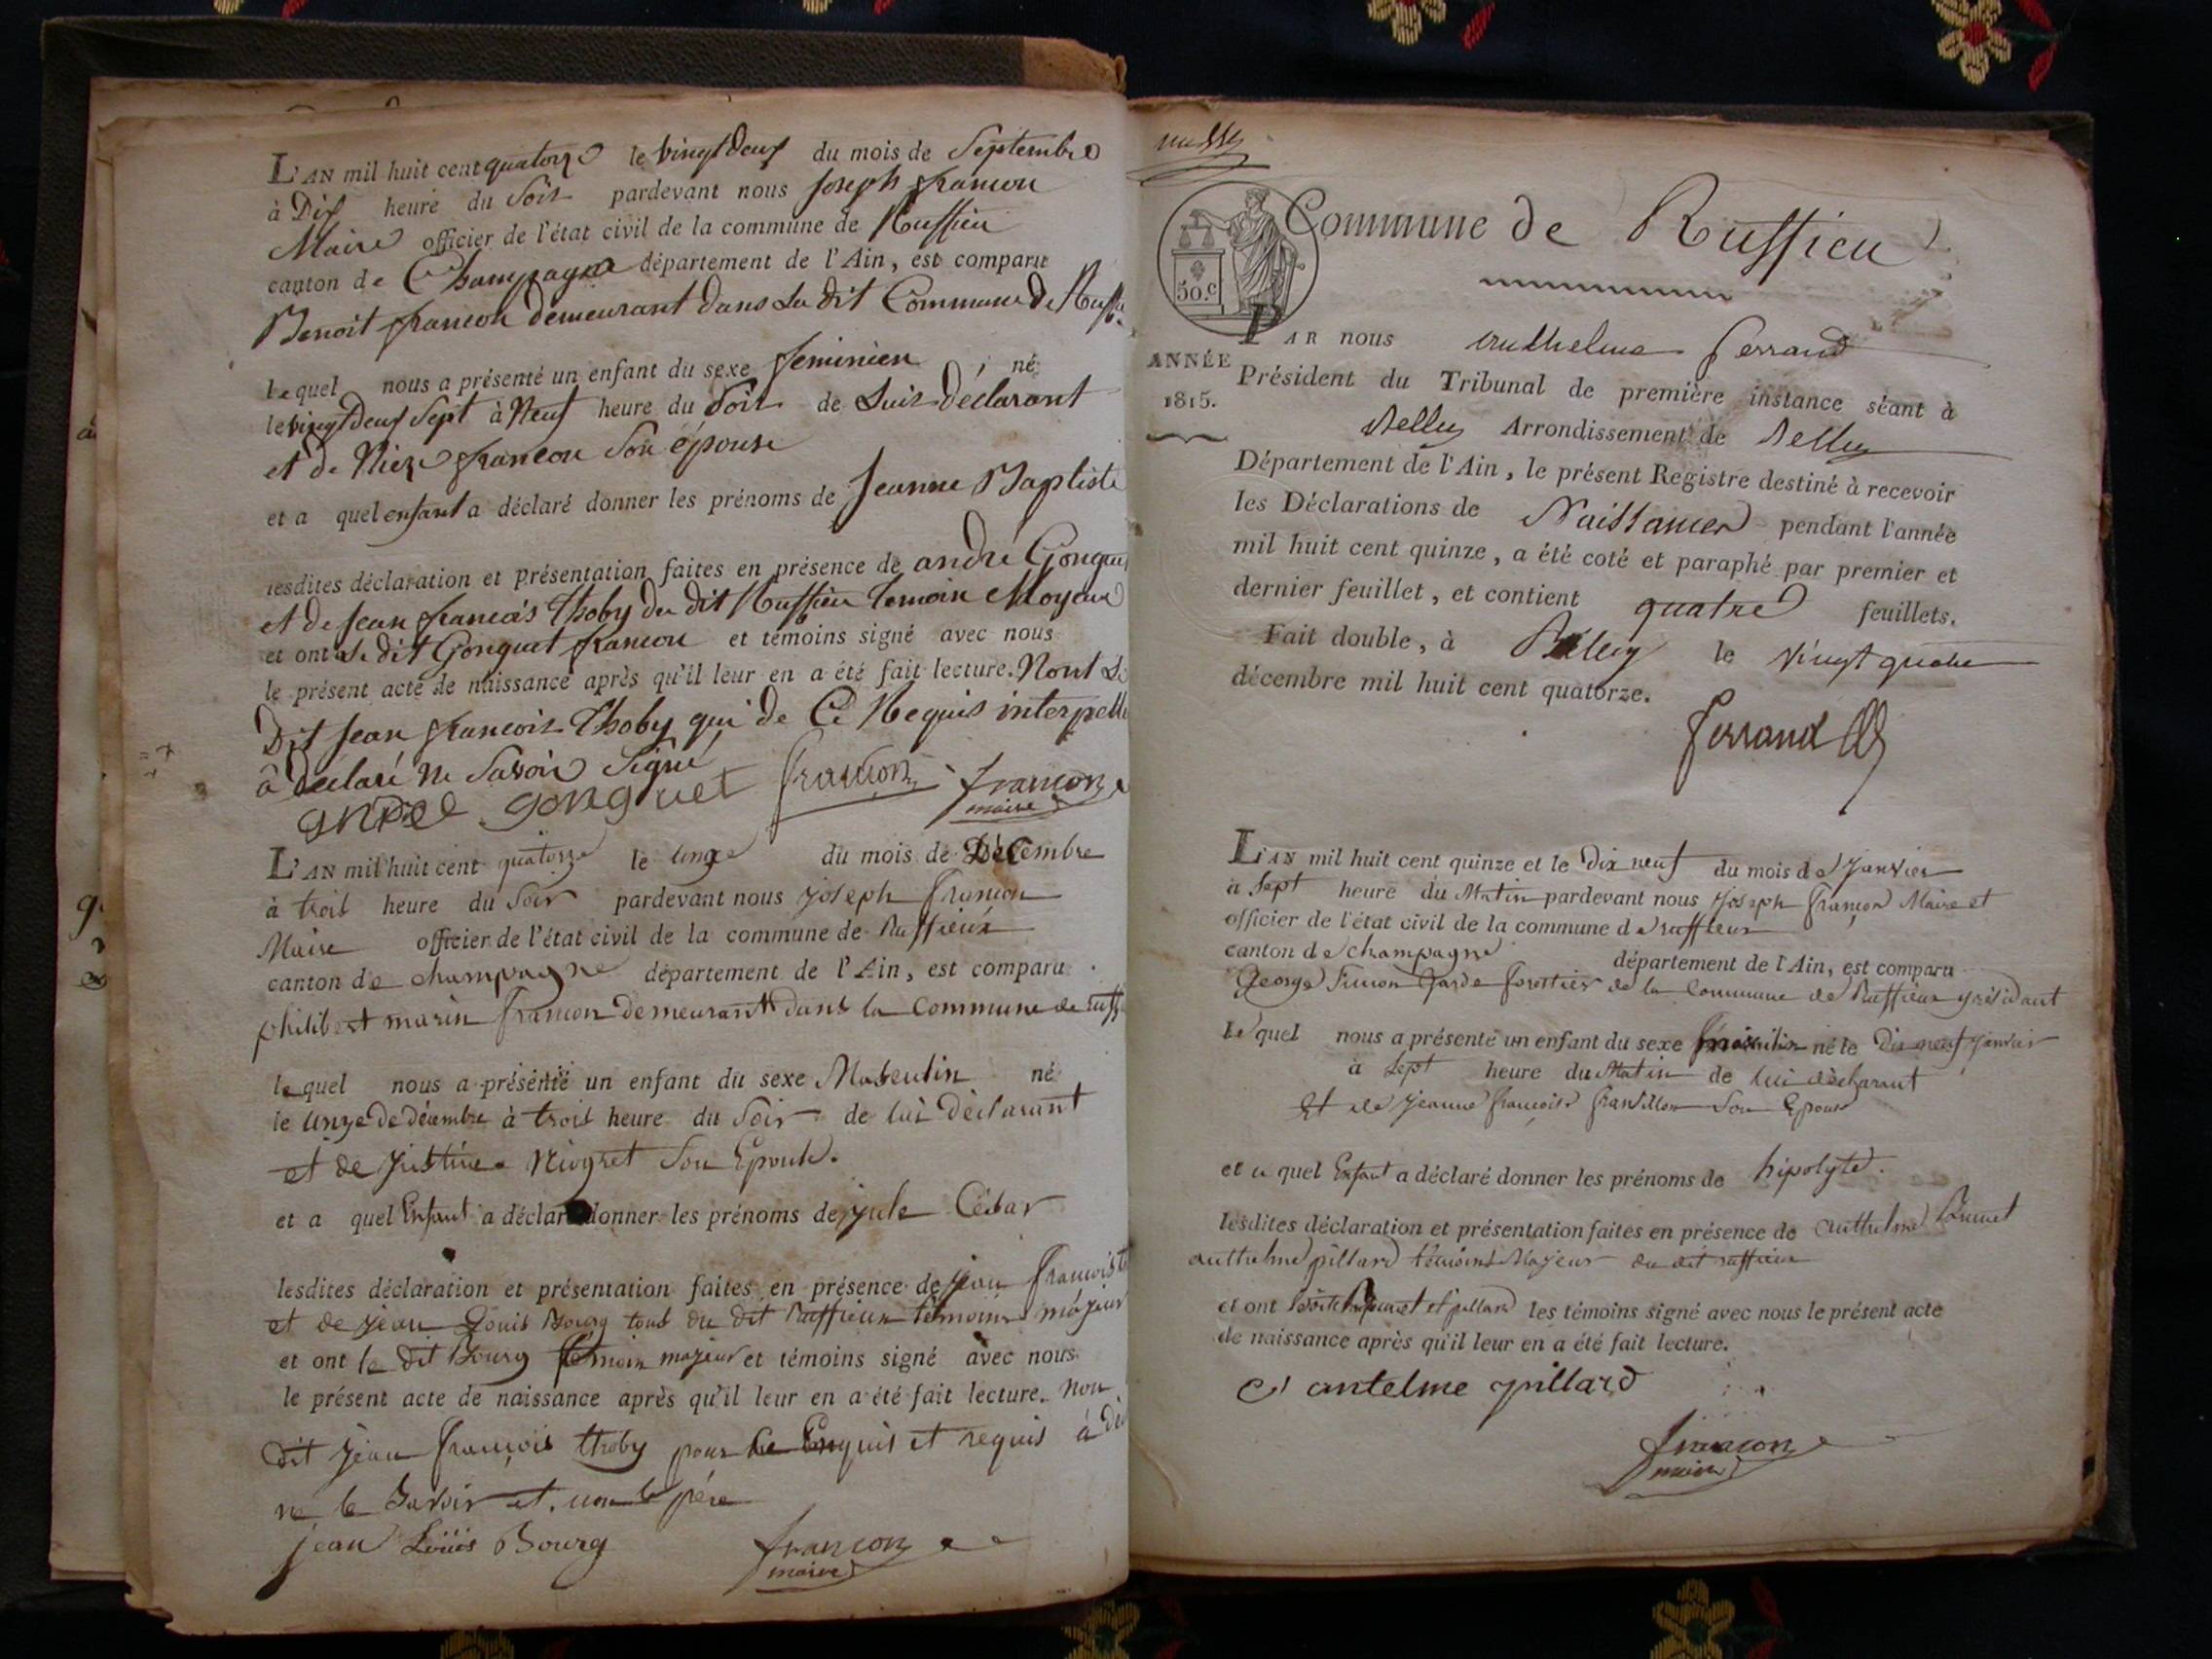 L'AN mil huit cent quatorze le vingt deux du mois de Septembre
à Dix heure du Soir pardevant nous Joseph françon
Maire officier de l'état civil de la commune de Ruffieu
canton de Champagne département de l'Ain, est comparu
Benoit françon demeurant dans La dit Commune de Ruffieu
lequel nous a présenté un enfant du sexe feminien, né
le vingt Deux Sept à Neuf heure du Soir de Luit déclarant
et de françon Son épouse
et a quel enfant a déclaré donner les prénoms de Jeanne Baptiste
lesdites déclaration et présentation faites en présence de andré Gonguet
et de Jean francois Thoby du dit Ruffieu temoin Mayeur
et ont Le dit Gonguet françon et témoins signé avec nous
le présent acte de naissance après qu'il leur en a été fait lecture. Nont Le
Dit Jean francois Thoby qui de Ce Requis interpelle
à déclaré Ne Savoir Signé
andre gonguet françon françon
maire
L'AN mil huit cent quatorze le unze du mois de Décembre
à trois heure du Soir pardevant nous joseph françon
Maire officier de l'état civil de la commune de Ruffieux
canton de champagne département de l'Ain, est comparu
philibert marin françon demeurant dans la Commune de ruffieu
lequel nous a présenté un enfant du sexe Masculin né
le unze De décembre à trois heure du Soir de lui Déclarant
et de justine Niogret Son Epouse.
et a quel Enfant a déclaré donner les prénoms de jule César
lesdites déclaration et présentation faites en présence de jean françois
et de jean Louis Bourg tous du dit Ruffieux témoins majeur
et ont le dit Bourg témoin majeur et témoins signé avec nous
le présent acte de naissance après qu'il leur en a été fait lecture. non
dit jean françois thoby pour Ce Enquis et requis à
ne le Savoir et, non le père
jean Loüis Bourg françon
maire
Commune de Ruffieu
50.c
PAR nous Anthelme ferrand
ANNÉE
1815.
Président du Tribunal de première instance séant à
Belley Arrondissement de Belley
Département de l'Ain, le présent Registre destiné à recevoir
les Déclarations de Naissances pendant l'année
mil huit cent quinze, a été coté et paraphé par premier et
dernier feuillet, et contient quatre feuillets.
Fait double, à Belley le vingt quatre
décembre mil huit cent quatorze.
ferrand
L'AN mil huit cent quinze et le Dix neuf du mois de Janvier
à Sept heure du Matin pardevant nous joseph françon Maire et
officier de l'état civil de la commune de ruffieux
canton de champagne département de l'Ain, est comparu
George garde forestier de la Commune de Ruffieux y résidant
le quel nous a présenté un enfant du sexe masculin né le Dix neuf janvier
à Sept heure du Matin de lui déclarant
Et de jeanne françoise Son Epouse
et a quel Enfant a déclaré donner les prénoms de hipolyte.
lesdites déclaration et présentation faites en présence de anthelme
anthelme pillard témoins Majeur du dit ruffieux
et ont et pillard les témoins signé avec nous le présent acte
de naissance après qu'il leur en a été fait lecture.
antelme pillard
françon
maire